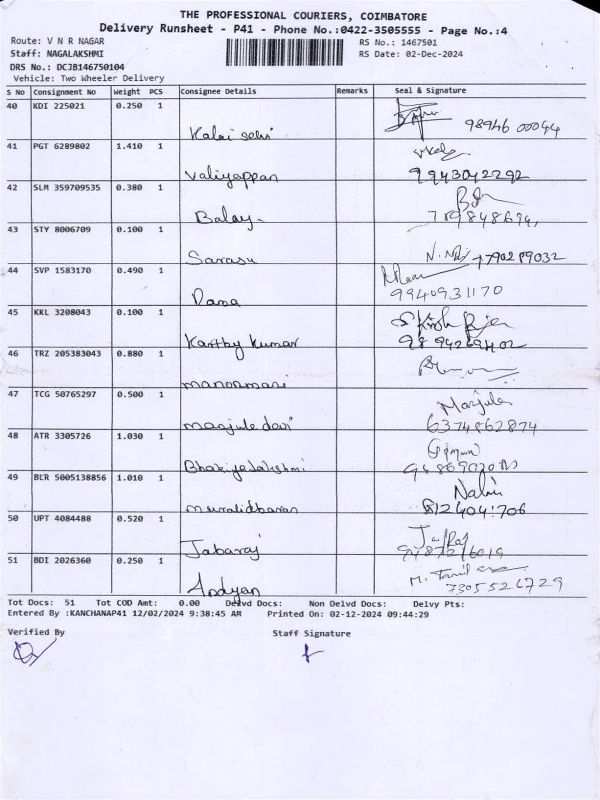 THE PROFESSIONAL COURIERS, COIMBATORE
Delivery Runsheet - P41 - Phone No.:0422-3505555 - Page No.:4
Route: V N R NAGAR RS No.: 1467501
Staff: NAGALAKSHMI RS Date: 02-Dec-2024
DRS No.: DCJB146750104
Vehicle: Two Wheeler Delivery
S No Consignment No Weight PCS Consignee Details Remarks Seal & Signature
40 KDI 225021 0.250 1
Kalai selvi 98946 00044
41 PGT 6289802 1.410 1
Valiyappan 9943042292
42 SLM 359709535 0.380 1
Balay-
43 STY 8006709 0.100 1
Sarasu 7790289032
44 SVP 1583170 0.490 1
Rama 9940931170
45 KKL 3208043 0.100 1
Karthy kumar
46 TRZ 205383043 0.880 1
manormani
47 TCG 50765297 0.500 1 Manjula
manjule davi 6374862874
48 ATR 3305726 1.030 1
Bhakiyalakshmi
49 BLR 5005138856 1.010 1 Nalini
muralidharan
50 UPT 4084488 0.520 1
Jabaraj
51 BDI 2026360 0.250 1
Andyan 7305526729
Tot Docs: 51 Tot COD Amt: 0.00 Delvd Docs: Non Delvd Docs: Delvy Pts:
Entered By :KANCHANAP41 12/02/2024 9:38:45 AM Printed On: 02-12-2024 09:44:29
Verified By Staff Signature